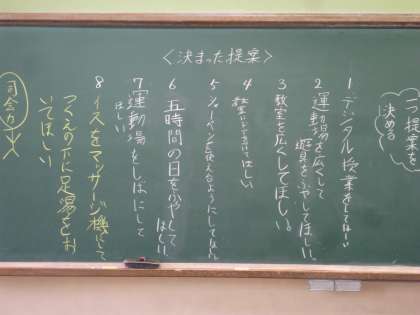 つ提案を
決める
<決まった提案>
1 デジタル授業をしてほしい
2 運動場を広くして
遊具をふやしてほしい。
3 教室を広くしてほしい。
4 ほしい
5 シャーペンを使えるようにしてほしい
6 五時間の日をふやして
ほしい
7 運動場をしばふにして
ほしい
8 イスをマッサージ機にして
つくえの下に足湯をお
いてほしい
司会